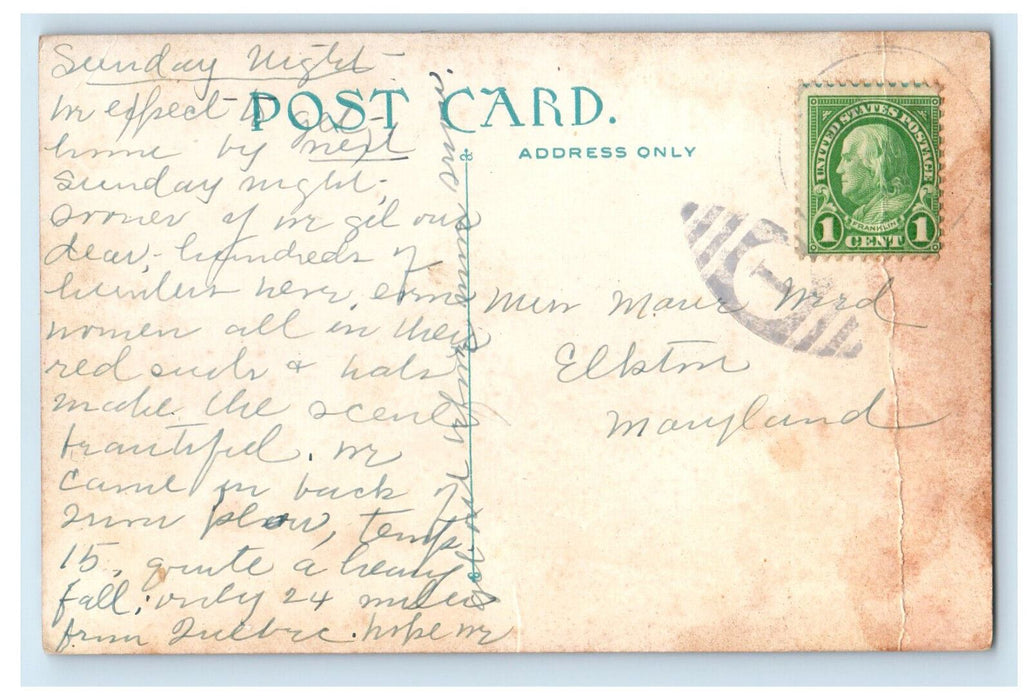 Sunday Night -
We expect to get
home by next
Sunday night,
sooner if we get our
deer, - hundreds of
hunters here, some
women all in their
red suits & hats
make the scene
beautiful. We
came in back of
snow plow, temp.
15, quite a heavy
fall; only 24 miles
from Quebec. hope we
get our
in
POST CARD.
ADDRESS ONLY
UNITED STATES POSTAGE
FRANKLIN
1 CENT 1
1
Miss
Elkton
Maryland